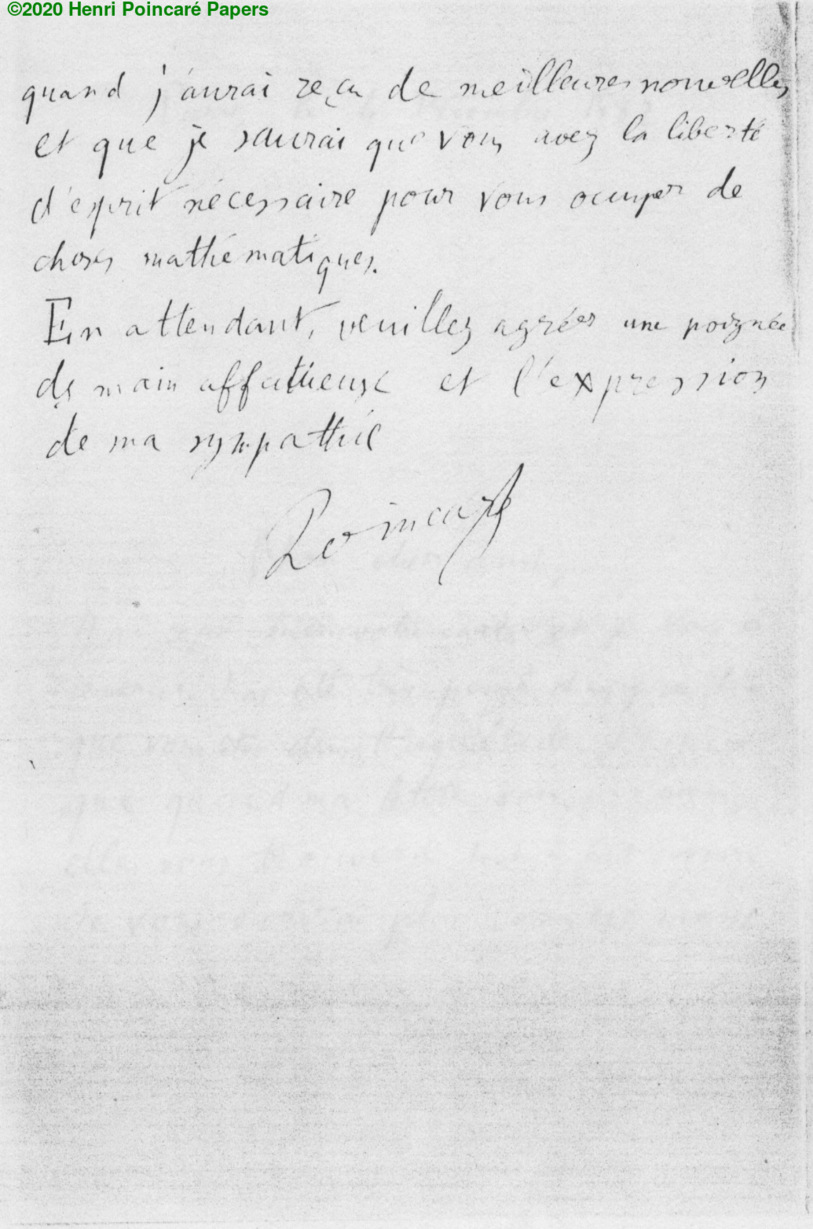 ©2020 Henri Poincaré Papers
quand j'aurai reçu de meilleures nouvelles
et que je saurai que vous avez la liberté
d'esprit nécessaire pour vous occuper de
choses mathématiques.
En attendant, veuillez agréer une poignée
de main affectueuse et l'expression
de ma sympathie
Poincaré